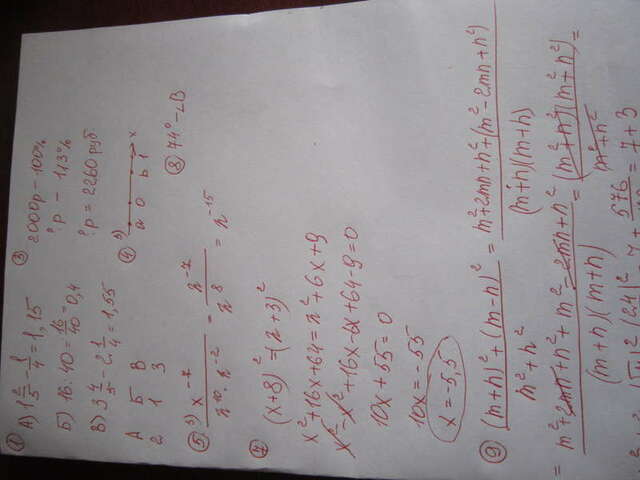 ① А) 1 2/5 − 1/4 = 1,15
Б) 16 · 40 = 16/40 = 0,4
В)
А Б В
2 1 3
③ 2000р − 100%
?р − 113%
?р = 2260 руб
④ 3)
a 0 b 1 x
⑤ 3) x⁻⁷ / x¹⁰·x⁻² = x⁻⁷ / x⁸ = x⁻¹⁵
⑧ 74° − ∠B
⑦ (x+8)² = (x+3)²
x² + 16x + 64 = x² + 6x + 9
x² − x² + 16x − 6x + 64 − 9 = 0
10x + 55 = 0
10x = −55
x = −5,5
⑨ (m+n)² + (m−n)² / m² + n² = m² + 2mn + n² + (m² − 2mn + n²) / (m+n)(m+n)
= m² + 2mn + n² + m² − 2mn + n² / (m+n)(m+n) = (m² + n²)(m² + n²) / m² + n² =
576
= 7 + 3